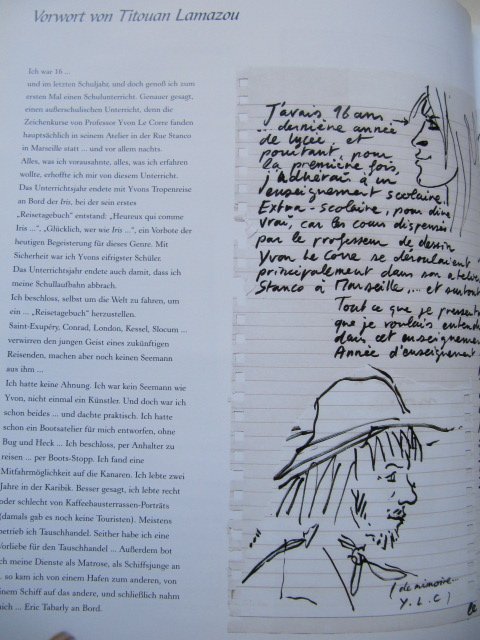 Vorwort von Titouan Lamazou
Ich war 16 ...
und im letzten Schuljahr, und doch genoß ich zum
ersten Mal einen Schulunterricht. Genauer gesagt,
einen außerschulischen Unterricht, denn die
Zeichenkurse von Professor Yvon Le Corre fanden
hauptsächlich in seinem Atelier in der Rue Stanco
in Marseille statt ... und vor allem nachts.
Alles, was ich vorausahnte, alles, was ich erfahren
wollte, erhoffte ich mir von diesem Unterricht.
Das Unterrichtsjahr endete mit Yvons Tropenreise
an Bord der Iris, bei der sein erstes
„Reisetagebuch" entstand: „Heureux qui comme
Iris ...", „Glücklich, wer wie Iris ...", ein Vorbote der
heutigen Begeisterung für dieses Genre. Mit
Sicherheit war ich Yvons eifrigster Schüler.
Das Unterrichtsjahr endete auch damit, dass ich
meine Schullaufbahn abbrach.
Ich beschloss, selbst um die Welt zu fahren, um
ein ... „Reisetagebuch" herzustellen.
Saint-Exupéry, Conrad, London, Kessel, Slocum ...
verwirren den jungen Geist eines zukünftigen
Reisenden, machen aber noch keinen Seemann
aus ihm ...
Ich hatte keine Ahnung. Ich war kein Seemann wie
Yvon, nicht einmal ein Künstler. Und doch war ich
schon beides ... und dachte praktisch. Ich hatte
schon ein Bootsatelier für mich entworfen, ohne
Bug und Heck ... Ich beschloss, per Anhalter zu
reisen ... per Boots-Stopp. Ich fand eine
Mitfahrmöglichkeit auf die Kanaren. Ich lebte zwei
Jahre in der Karibik. Besser gesagt, ich lebte recht
oder schlecht von Kaffeehausterrassen-Porträts
(damals gab es noch keine Touristen). Meistens
betrieb ich Tauschhandel. Seither habe ich eine
Vorliebe für den Tauschhandel ... Außerdem bot
ich meine Dienste als Matrose, als Schiffsjunge an
... so kam ich von einem Hafen zum anderen, von
einem Schiff auf das andere, und schließlich nahm
mich ... Eric Tabarly an Bord.
J'avais 16 ans
... dernière année
de lycée et
pourtant pour
la première fois,
j'adhérais à un
enseignement scolaire.
Extra-scolaire, pour dire
vrai, car les cours dispensés
par le professeur de dessin
Yvon Le Corre se déroulaient
principalement dans son atelier
Stanco à Marseille,... et surtout
Tout ce que je pressent
que je voulais entend
dans cet enseignement
Année d'enseignement
(de mémoire...
Y.L.C)